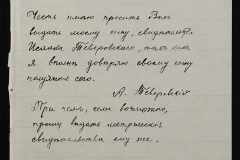 Честь имею просить Вас
выдать моему сыну, свидетельство
Исаака Тёверовского, так как
я вполне доверяю своему сыну
получить его.
А. Тёверовскій
При чем, если возможно,
прошу выдать метрическое
свидетельство ему же.